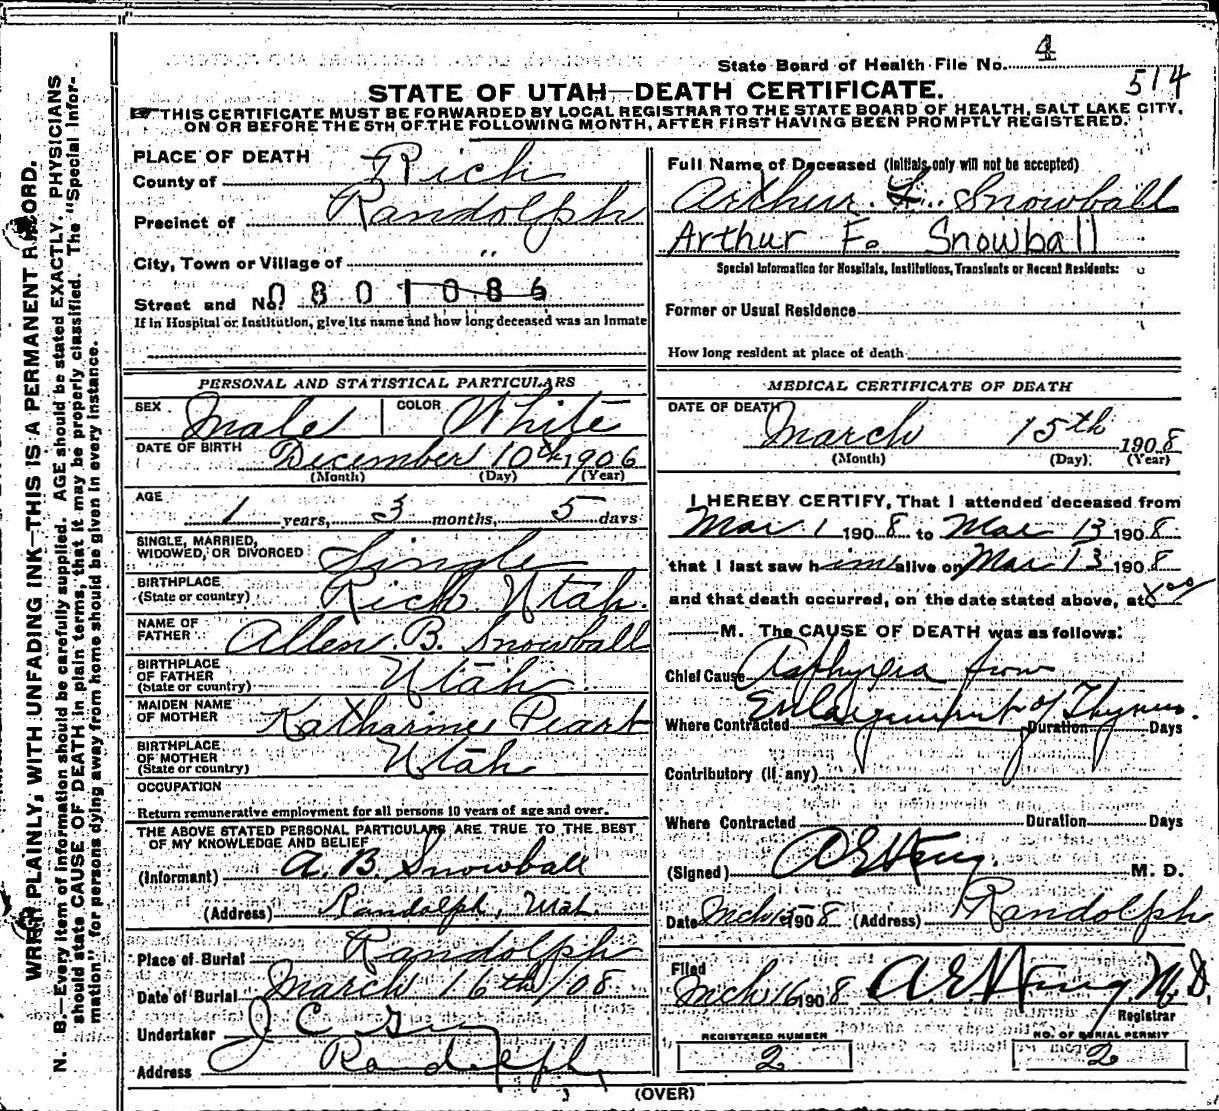 State Board of Health File No. 4
514
STATE OF UTAH—DEATH CERTIFICATE.
THIS CERTIFICATE MUST BE FORWARDED BY LOCAL REGISTRAR TO THE STATE BOARD OF HEALTH, SALT LAKE CITY,
ON OR BEFORE THE 5TH OF THE FOLLOWING MONTH, AFTER FIRST HAVING BEEN PROMPTLY REGISTERED.
WRITE PLAINLY, WITH UNFADING INK—THIS IS A PERMANENT RECORD.
N. B.—Every item of information should be carefully supplied. AGE should be stated EXACTLY. PHYSICIANS
should state CAUSE OF DEATH in plain terms, that it may be properly classified. The "Special Infor-
mation" for persons dying away from home should be given in every instance.
PLACE OF DEATH
County of Rich
Precinct of Randolph
City, Town or Village of "
Street and No. 0801086
If in Hospital or Institution, give its name and how long deceased was an Inmate
PERSONAL AND STATISTICAL PARTICULARS
SEX Male COLOR White
DATE OF BIRTH December 10th, 1906
(Month) (Day) (Year)
AGE 1 years, 3 months, 5 days
SINGLE, MARRIED,
WIDOWED, OR DIVORCED Single
BIRTHPLACE
(State or country) Rich Utah.
NAME OF
FATHER Allen B. Snowball
BIRTHPLACE
OF FATHER
(State or country) Utah
MAIDEN NAME
OF MOTHER Katharine Peart
BIRTHPLACE
OF MOTHER
(State or country) Utah
OCCUPATION
Return remunerative employment for all persons 10 years of age and over.
THE ABOVE STATED PERSONAL PARTICULARS ARE TRUE TO THE BEST
OF MY KNOWLEDGE AND BELIEF
(Informant) A. B. Snowball
(Address) Randolph, Utah.
Place of Burial Randolph
Date of Burial March 16th/08
Undertaker J C
Address Randolph,
Full Name of Deceased (Initials only will not be accepted)
Arthur F. Snowball
Arthur F. Snowball
Special Information for Hospitals, Institutions, Transients or Recent Residents:
Former or Usual Residence
How long resident at place of death
MEDICAL CERTIFICATE OF DEATH
DATE OF DEATH March 15th 1908
(Month) (Day) (Year)
I HEREBY CERTIFY, That I attended deceased from
Mar 1 1908 to Mar 13 1908
that I last saw him alive on Mar 13 1908
and that death occurred, on the date stated above, at
M. The CAUSE OF DEATH was as follows:
Chief Cause Asphyxia from
Where Contracted Enlargement of Thymus. Duration Days
Contributory (if any)
Where Contracted Duration Days
(Signed) M. D.
Date Mch 15 1908 (Address) Randolph
Filed
Mch 16 1908 M. D.
Registrar
REGISTERED NUMBER
2
NO. OF BURIAL PERMIT
2
(OVER)